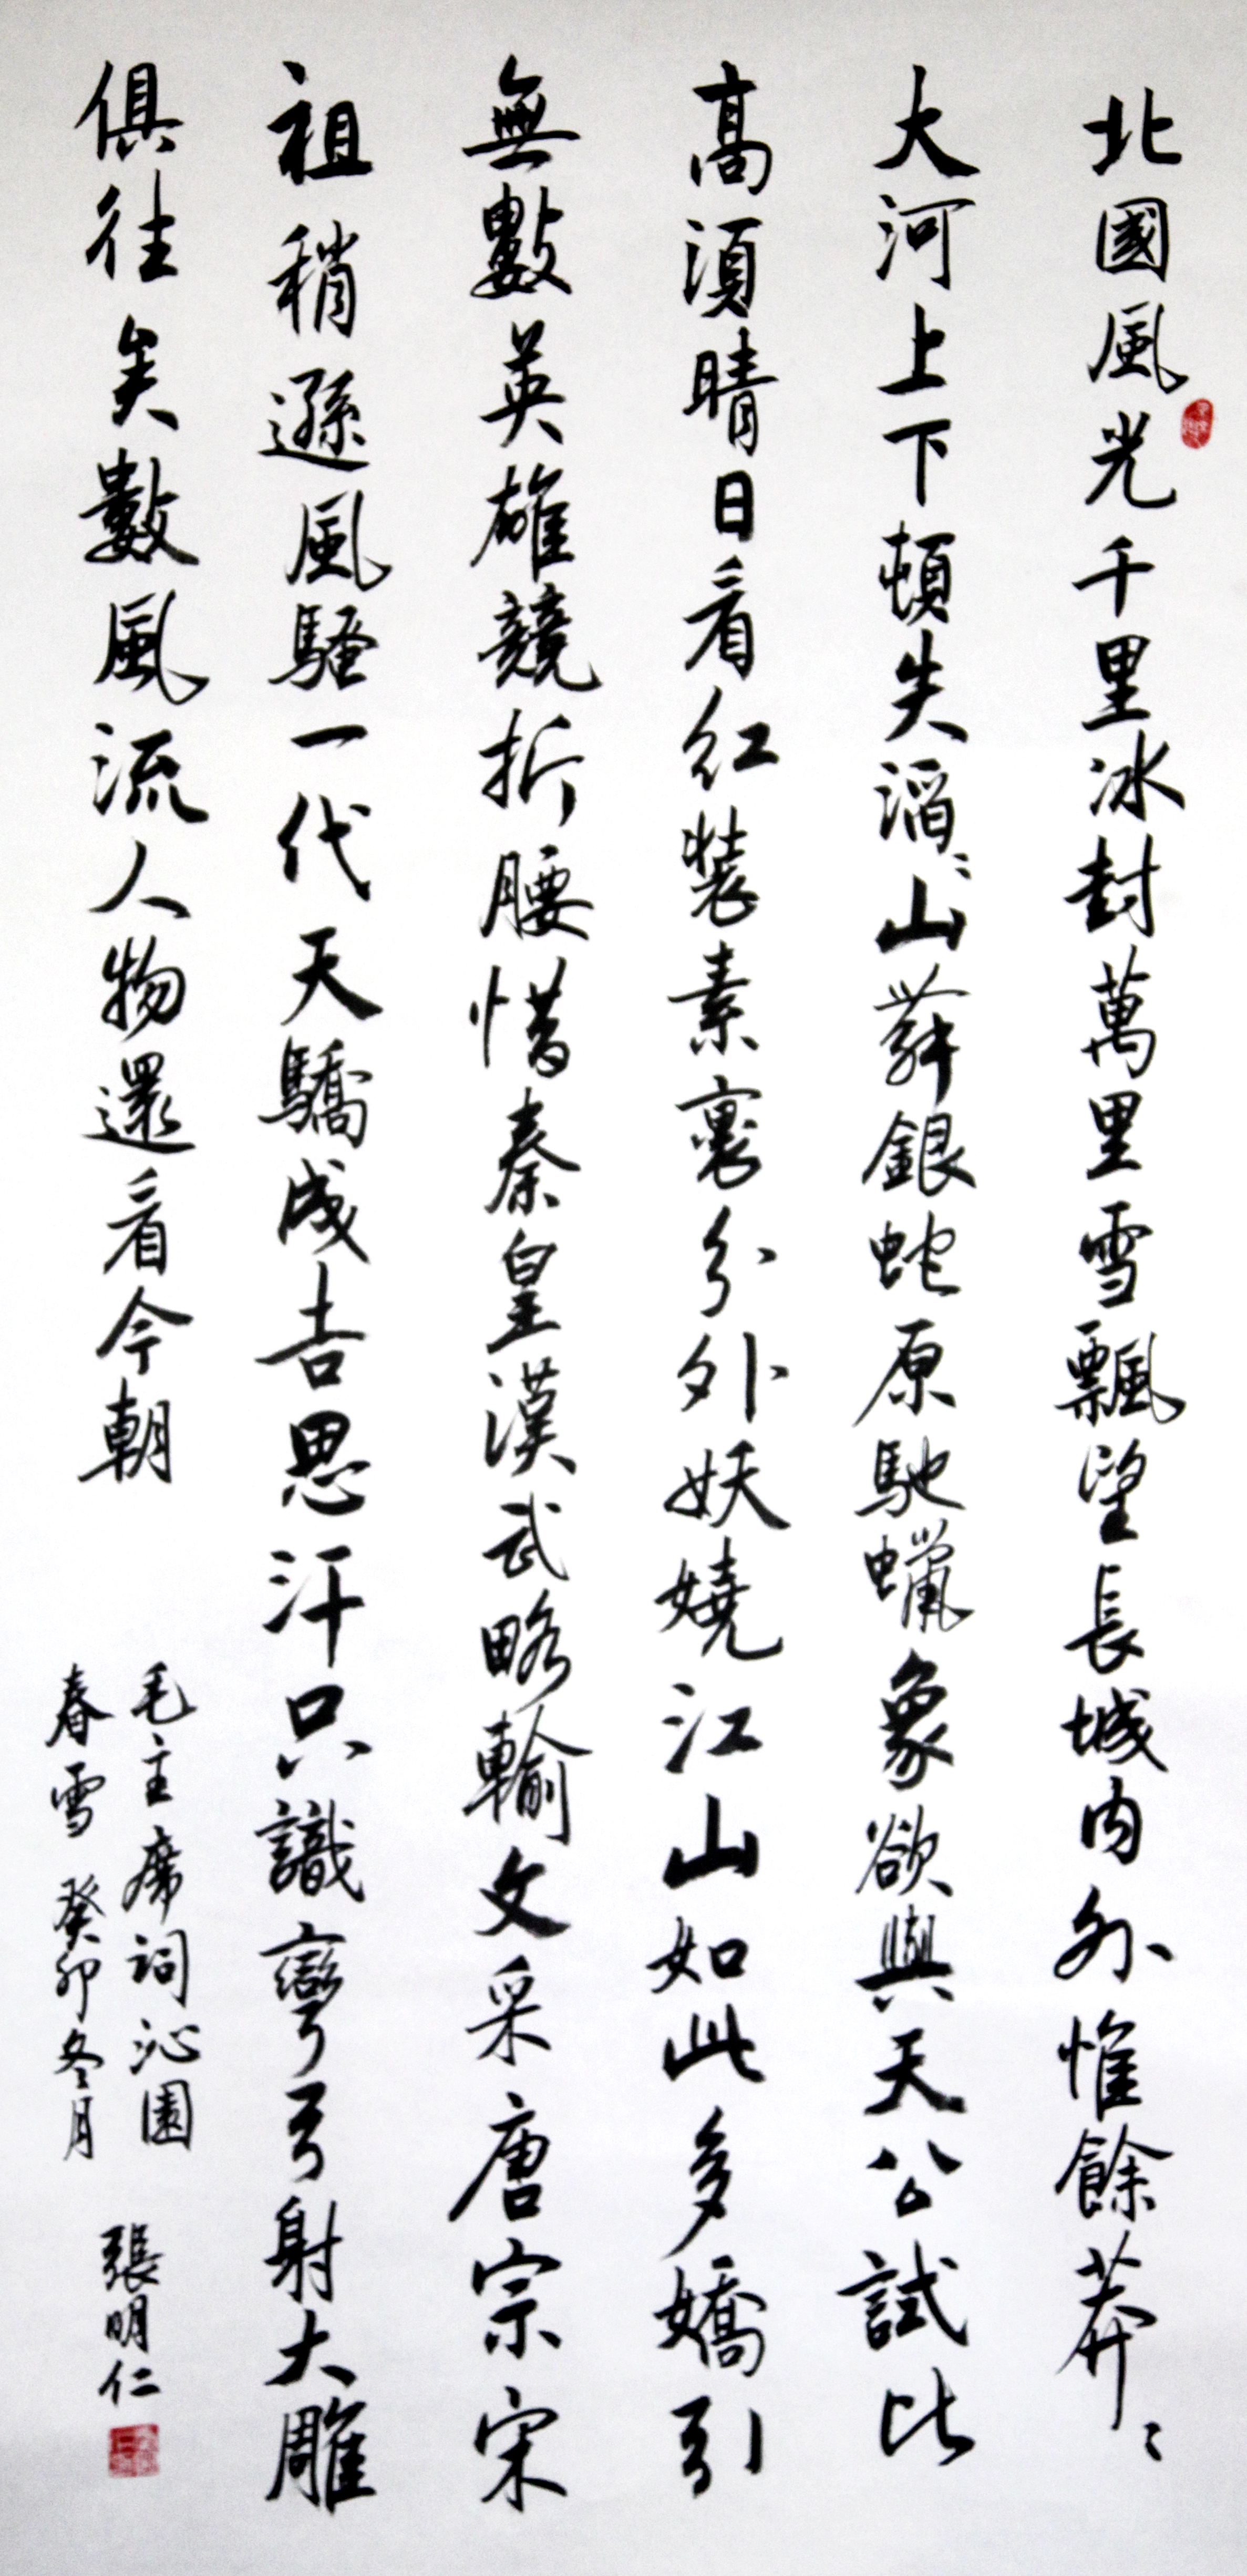 北國風光千里冰封萬里雪飄望長城内外惟餘莽〻
大河上下頓失滔〻山舞銀蛇原馳蠟象欲與天公試比
高須晴日看紅裝素裹分外妖嬈江山如此多嬌引
無數英雄競折腰惜秦皇漢武略輸文采唐宗宋
祖稍遜風騷一代天驕成吉思汗只識彎弓射大雕
俱往矣數風流人物還看今朝
毛主席詞沁園
春雪 癸卯冬月
張明仁